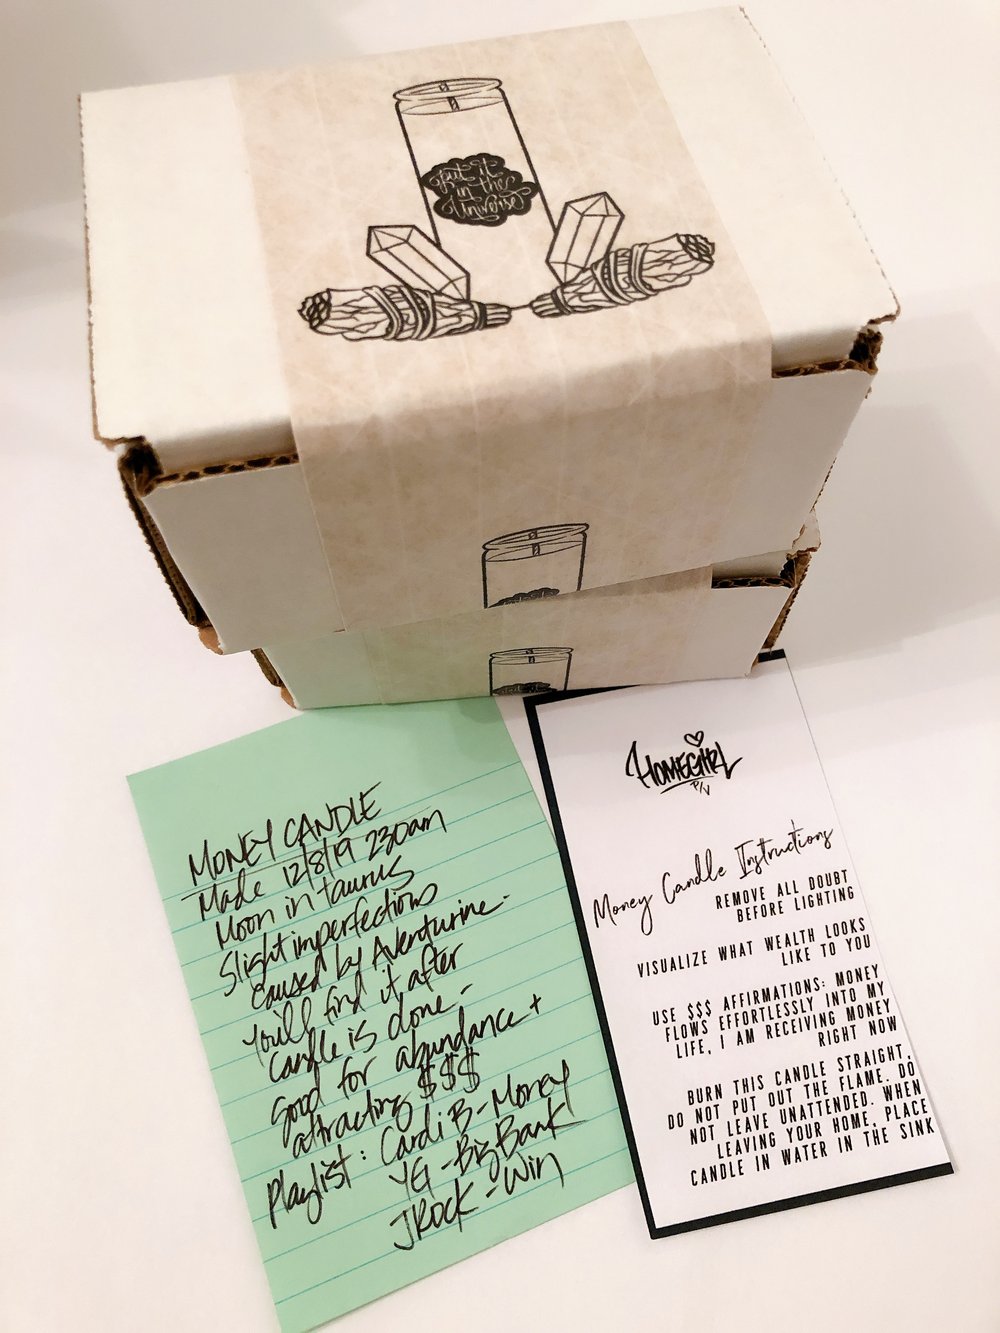 put it
in the
Universe
MONEY CANDLE
Made 12/8/19 230am
Moon in taurus
Slight imperfections
caused by Aventurine.
You'll find it after
candle is done -
good for abundance +
attracting $$$
playlist: Cardi B - Money
YG - Big Bank
JRock - Win
HOMEGIRL
PV
Money Candle Instructions
REMOVE ALL DOUBT
BEFORE LIGHTING
VISUALIZE WHAT WEALTH LOOKS
LIKE TO YOU
USE $$$ AFFIRMATIONS: MONEY
FLOWS EFFORTLESSLY INTO MY
LIFE, I AM RECEIVING MONEY
RIGHT NOW
BURN THIS CANDLE STRAIGHT,
DO NOT PUT OUT THE FLAME. DO
NOT LEAVE UNATTENDED. WHEN
LEAVING YOUR HOME, PLACE
CANDLE IN WATER IN THE SINK